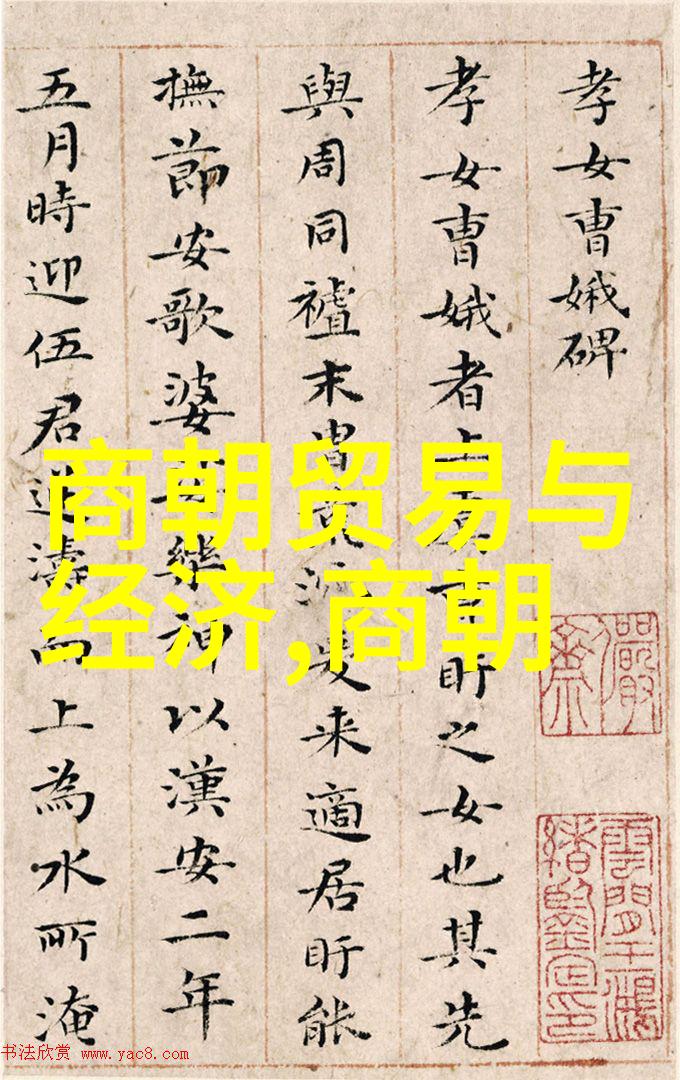 孝女曹娥碑
孝女曹娥者上盱之女也其先
與周同末爰来適居盱能
撫節安歌婆娑樂神以漢安二年
五月時迎伍君逆濤而上為水所淹
商朝贸易与
经济,商朝
书法欣赏 www.yac8.com